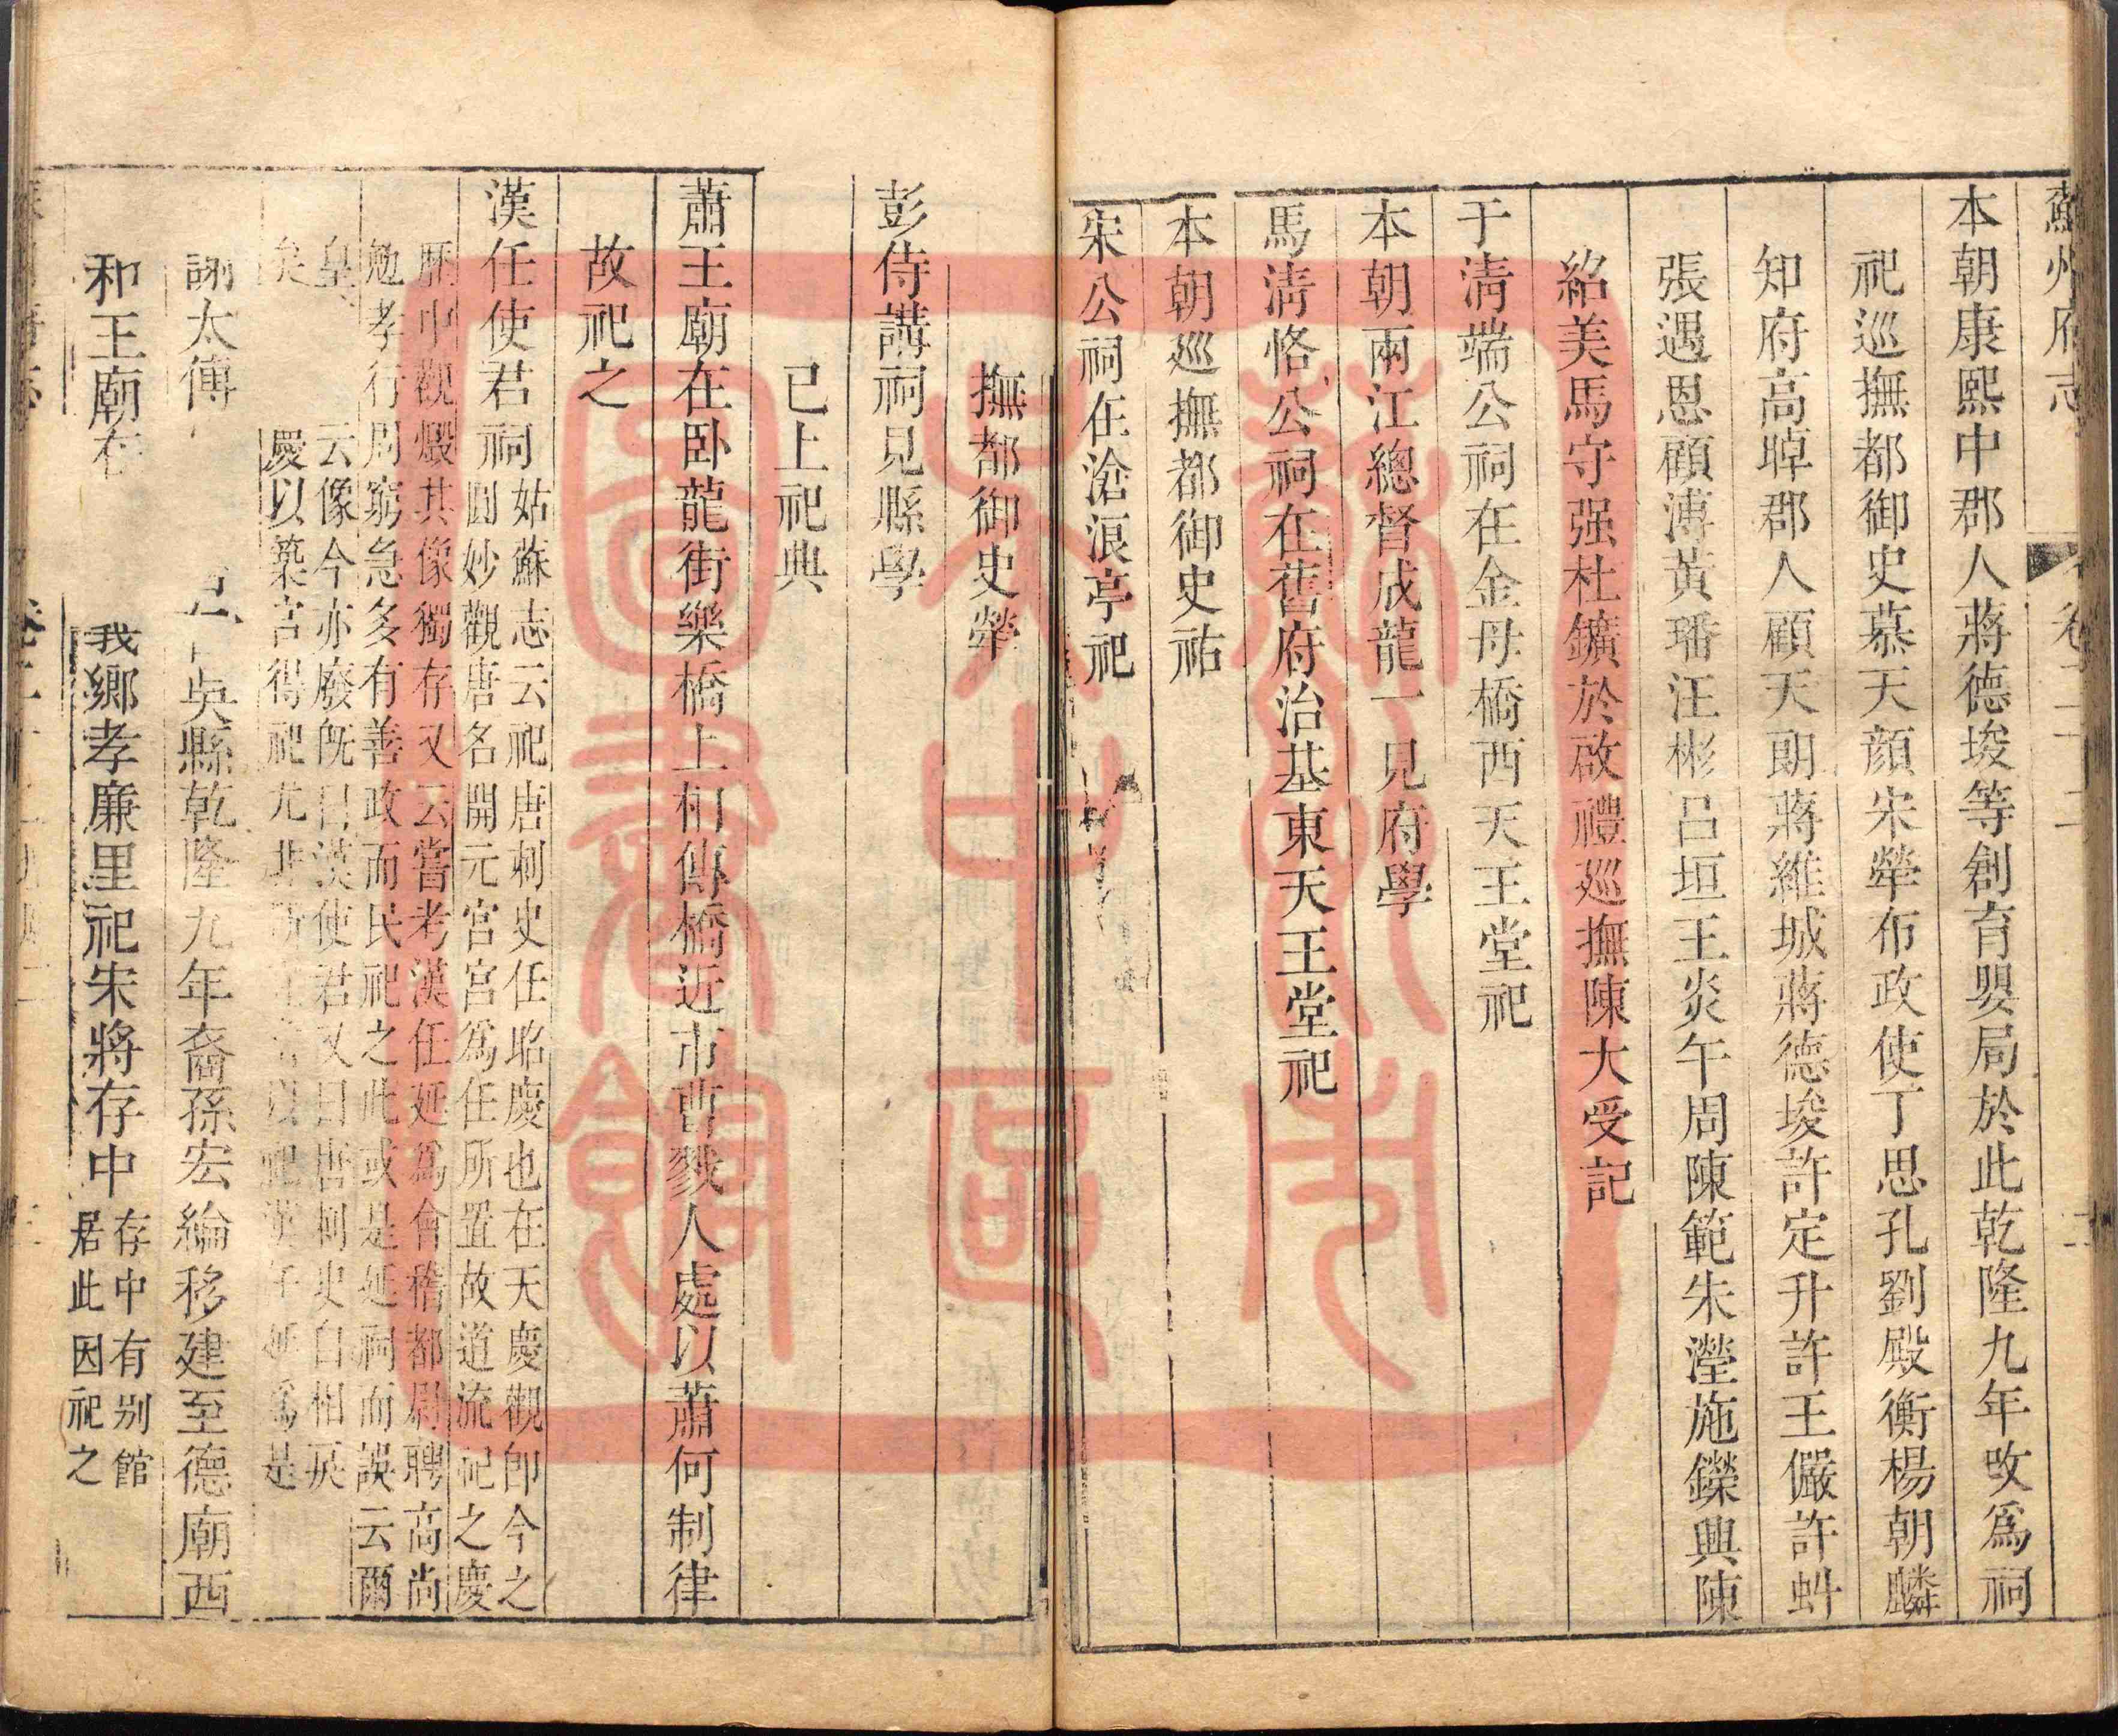 蘇州府志
卷二十二
本朝康熙中郡人蔣德埈等創育嬰局於此乾隆九年改爲祠
祀巡撫都御史慕天顏宋犖布政使丁思孔劉殿衡楊朝麟
知府高晫郡人顧天朗蔣維城蔣德埈許定升許王儼許蚪
張遇恩顧溥黃璠汪彬呂垣王炎午周陳範朱瀅施鑅興陳
紹美馬守强杜鑛於啟禮巡撫陳大受記
于淸端公祠在金母橋西天王堂祀
本朝兩江總督成龍一見府學
馬淸恪公祠在舊府治基東天王堂祀
本朝巡撫都御史祐
宋公祠在滄浪亭祀
撫都御史犖
彭侍講祠見縣學
已上祀典
蕭王廟在卧龍街樂橋上相傳橋近市曹戮人處以蕭何制律
故祀之
漢任使君祠
姑蘇志云祀唐刺史任昭慶也在天慶觀卽今之
圓妙觀唐名開元宮宮爲任所置故道流祀之慶
曆中觀燬其像獨存又云嘗考漢任延爲會稽都尉聘高尚
勉孝行周窮急多有善政而民祀之此或是延祠而誤云爾
皇 云像今亦廢旣曰漢使君又曰唐刺史自相戾
矣 慶以築宮得祀尤非 以祀漢任延爲是
謝太傅 吳縣乾隆九年裔孫宏綸移建至德廟西
和王廟在 我鄉孝廉里祀宋將存中
存中有别館
居此因祀之